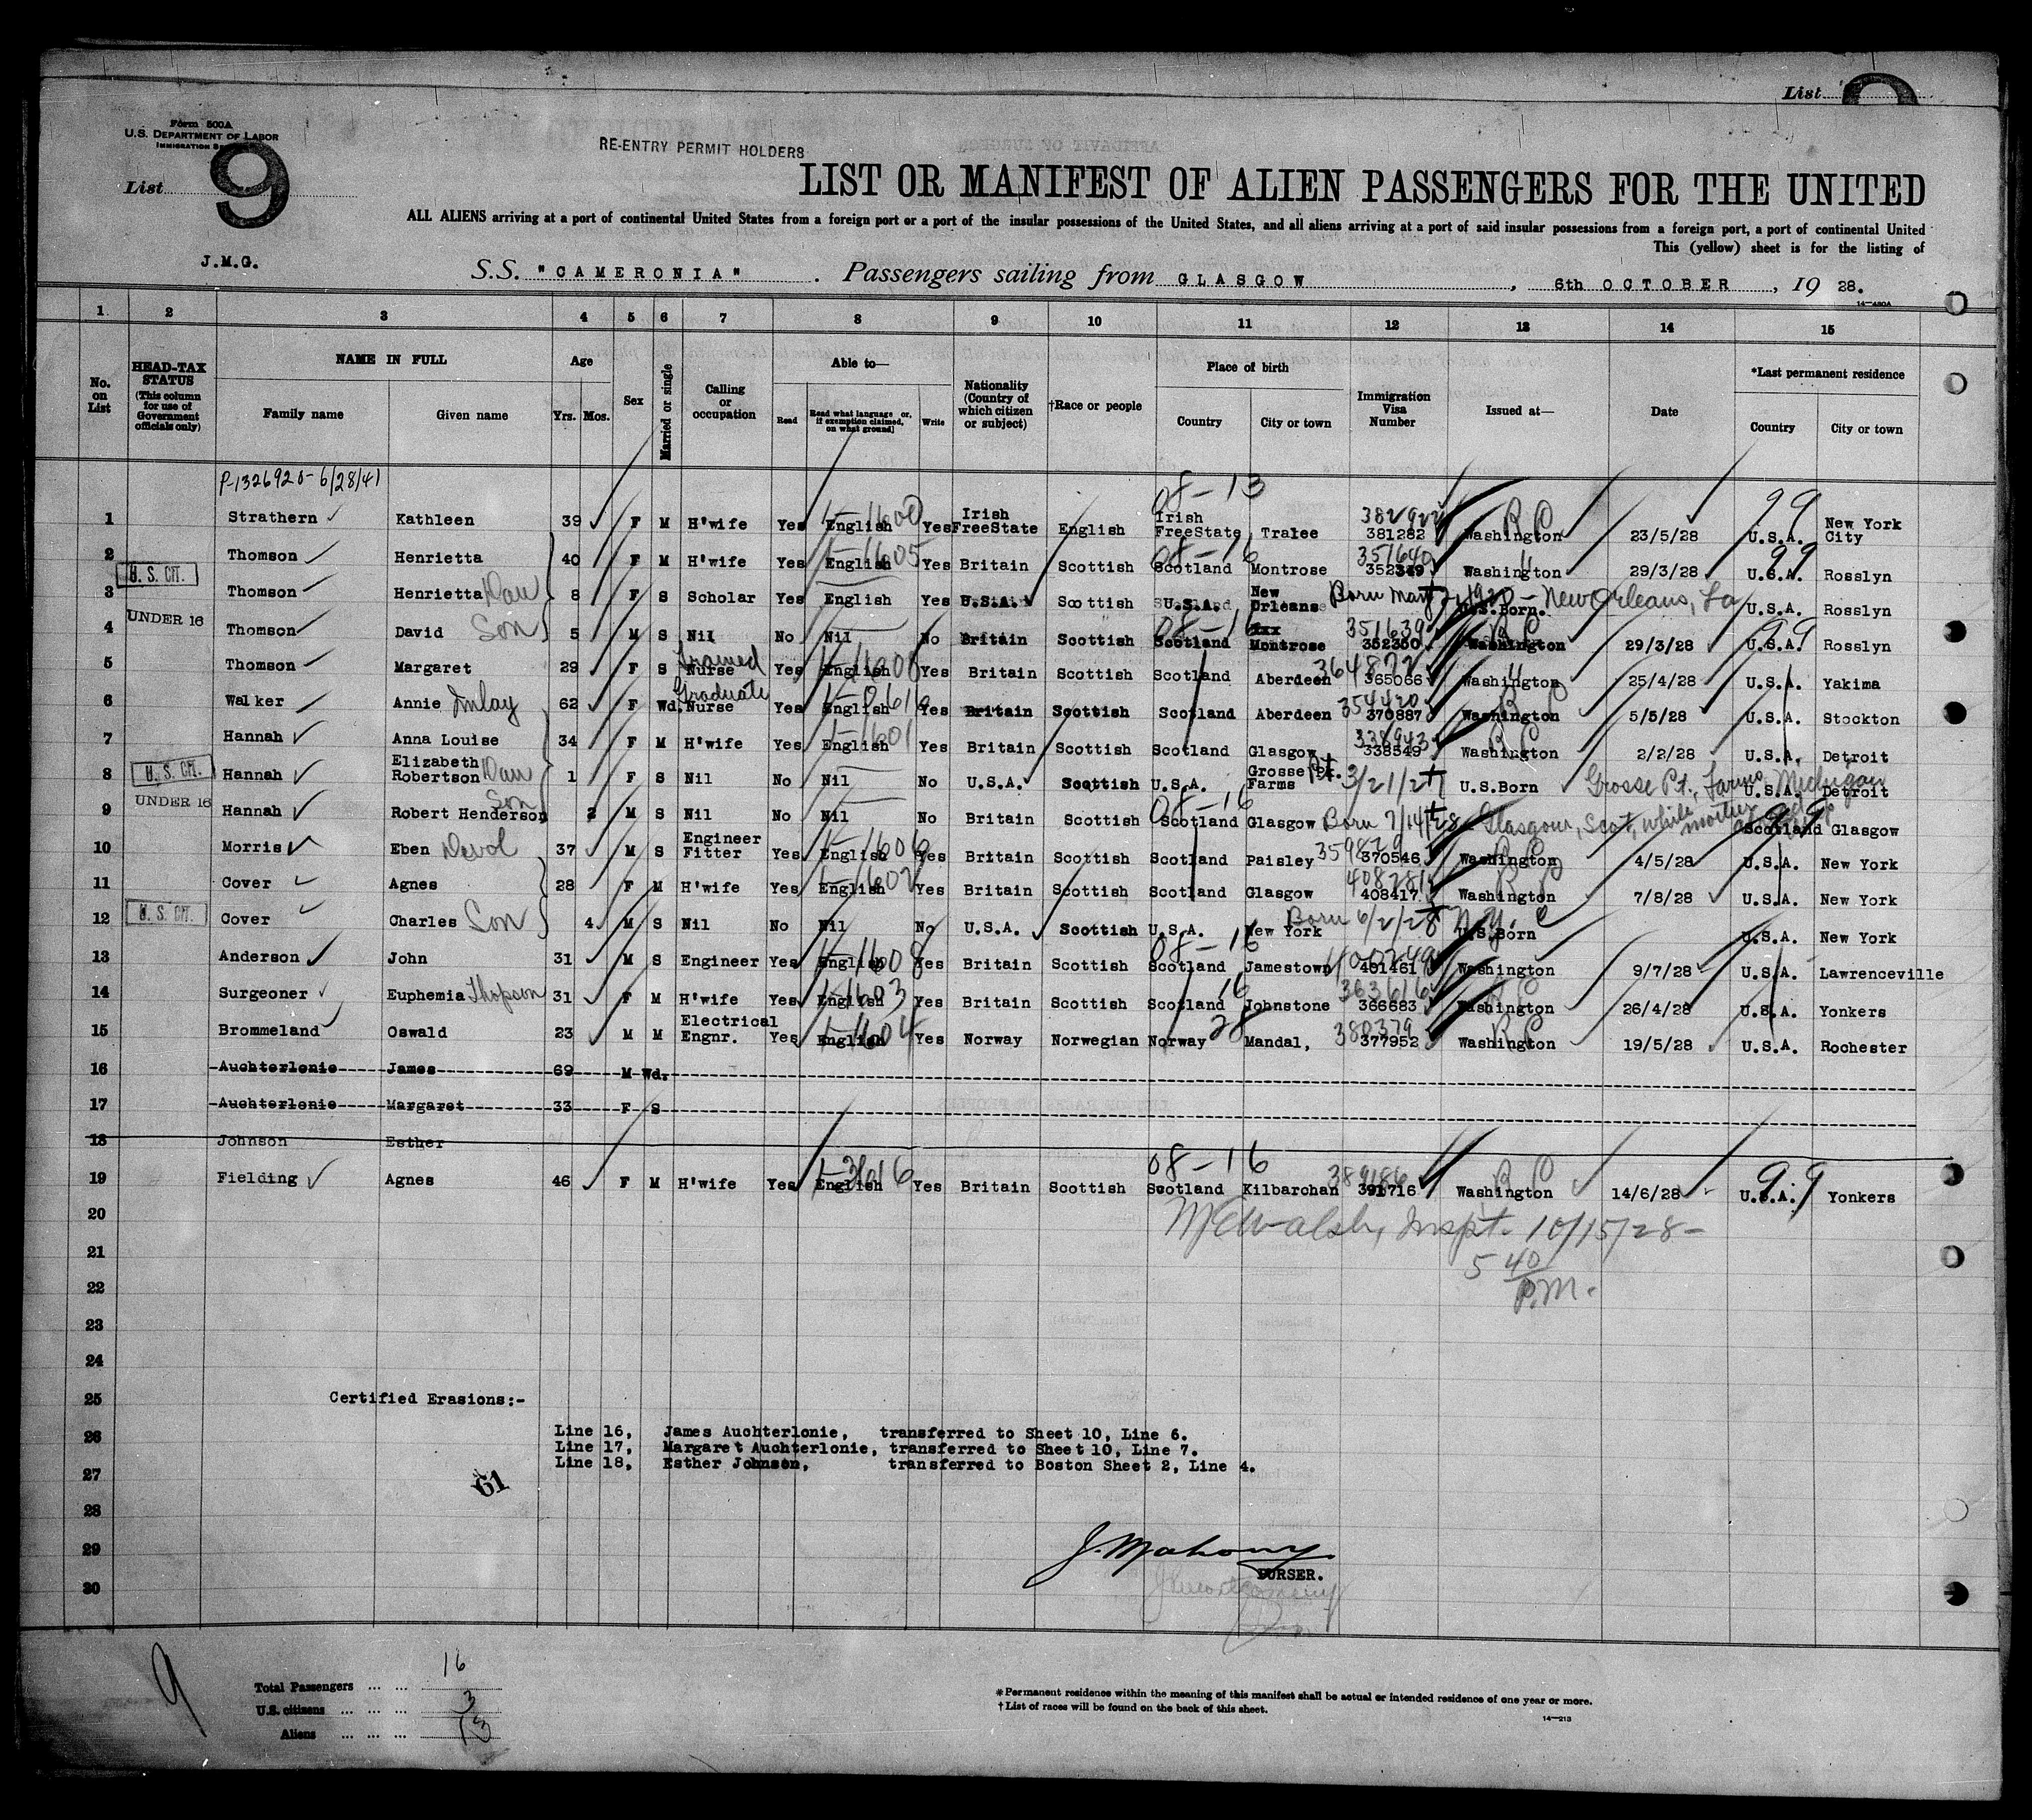 List
Form 500A
U.S. DEPARTMENT OF LABOR
IMMIGRATION
List 9
RE-ENTRY PERMIT HOLDERS
LIST OR MANIFEST OF ALIEN PASSENGERS FOR THE UNITED
ALL ALIENS arriving at a port of continental United States from a foreign port or a port of the insular possessions of the United States, and all aliens arriving at a port of said insular possessions from a foreign port, a port of continental United
This (yellow) sheet is for the listing of
J.M.G.
S.S. "CAMERONIA" . Passengers sailing from GLASGOW , 6th OCTOBER , 19 28.
14—480A
1 2 3 4 5 6 7 8 9 10 11 12 13 14 15
No. on List
HEAD-TAX STATUS (This column for use of Government officials only)
NAME IN FULL Family name Given name
Age Yrs. Mos.
Sex
Married or single
Calling or occupation
Able to— Read Read what language or, if exemption claimed, on what ground] Write
Nationality (Country of which citizen or subject)
†Race or people
Place of birth Country City or town
Immigration Visa Number
Issued at—
Date
*Last permanent residence Country City or town
P-1326920-6/28/41
08-13 99
1 Strathern Kathleen 39 F M H'wife Yes English 1-1600 Yes Irish FreeState English Irish FreeState Tralee 382922 381282 Washington RP 23/5/28 U.S.A. New York City
2 Thomson Henrietta 40 F M H'wife Yes English 1-1605 Yes Britain Scottish Scotland 08-16 Montrose 351640 352349 Washington " 29/3/28 U.S.A. 99 Rosslyn
3 U.S. CIT. Thomson Henrietta Dau 8 F S Scholar Yes English Yes U.S.A. Scottish U.S.A. New Orleans Born May 1920 - New Orleans, La U.S. Born. U.S.A. Rosslyn
4 UNDER 16 Thomson David Son 5 M S Nil No Nil No Britain Scottish Scotland 08-16 Montrose 351639 352350 Washington RP 29/3/28 U.S.A. 99 Rosslyn
5 Thomson Margaret 29 F S Trained Nurse Yes English Yes Britain Scottish Scotland Aberdeen 364822 365066 Washington " 25/4/28 U.S.A. Yakima
6 Walker Annie Imlay 62 F Wd. Graduate Nurse Yes English Yes Britain Scottish Scotland Aberdeen 354420 370887 Washington RP 5/5/28 U.S.A. Stockton
7 Hannah Anna Louise 34 F M H'wife Yes English 1-1601 Yes Britain Scottish Scotland Glasgow 338943 338549 Washington RP 2/2/28 U.S.A. Detroit
8 U.S. CIT. Hannah Elizabeth Robertson Dau 1 F S Nil No Nil No U.S.A. Scottish U.S.A. Grosse Pt. Farms 3/21/27 U.S.Born Grosse Pt. Farms, Michigan U.S.A. Detroit
9 UNDER 16 Hannah Robert Henderson Son 2 M S Nil No Nil No Britain Scottish Scotland 08-16 Glasgow Born 7/14/28 Glasgow, Scot, while mother Scotland 99 Glasgow
10 Morris Eben Devol 37 M S Engineer Fitter Yes English 1-1606 Yes Britain Scottish Scotland Paisley 370546 Washington RP 4/5/28 U.S.A. New York
11 Cover Agnes 28 F M H'wife Yes English 1-1602 Yes Britain Scottish Scotland Glasgow 408281 408417 Washington RP 7/8/28 U.S.A. New York
12 U.S. CIT. Cover Charles Son 4 M S Nil No Nil No U.S.A. Scottish U.S.A. New York Born 6/2/28 N.Y. U.S.Born U.S.A. New York
13 Anderson John 31 M S Engineer Yes English 1-1608 Yes Britain Scottish Scotland 08-16 Jamestown 401461 Washington 9/7/28 U.S.A. Lawrenceville
14 Surgeoner Euphemia Thopson 31 F M H'wife Yes English 1-1603 Yes Britain Scottish Scotland 16 Johnstone 363616 366683 Washington RP 26/4/28 U.S.A. Yonkers
15 Brommeland Oswald 23 M M Electrical Engnr. Yes English 1-1604 Yes Norway Norwegian Norway 28 Mandal, 380379 377952 Washington RP 19/5/28 U.S.A. Rochester
16 Auchterlonie James 69 M Wd.
17 Auchterlonie Margaret 33 F S
18 Johnson Esther
19 Fielding Agnes 46 F M H'wife Yes English Yes Britain Scottish Scotland 08-16 Kilbarchan 389186 391716 Washington RP 14/6/28 U.S.A. 99 Yonkers
20 McWalsh, Inspt. 10/15/28-
21 5 40
22 P.M.
23
24
25 Certified Erasions:-
26 Line 16, James Auchterlonie, transferred to Sheet 10, Line 6.
Line 17, Margaret Auchterlonie, transferred to Sheet 10, Line 7.
27 Line 18, Esther Johnson, transferred to Boston Sheet 2, Line 4.
61
28
29 J. Mahony
PURSER.
30
9
Total Passengers ... ... 16
U.S. citizens ... ... ... 3
Aliens ... ... ... 13
*Permanent residence within the meaning of this manifest shall be actual or intended residence of one year or more.
†List of races will be found on the back of this sheet.
14—213